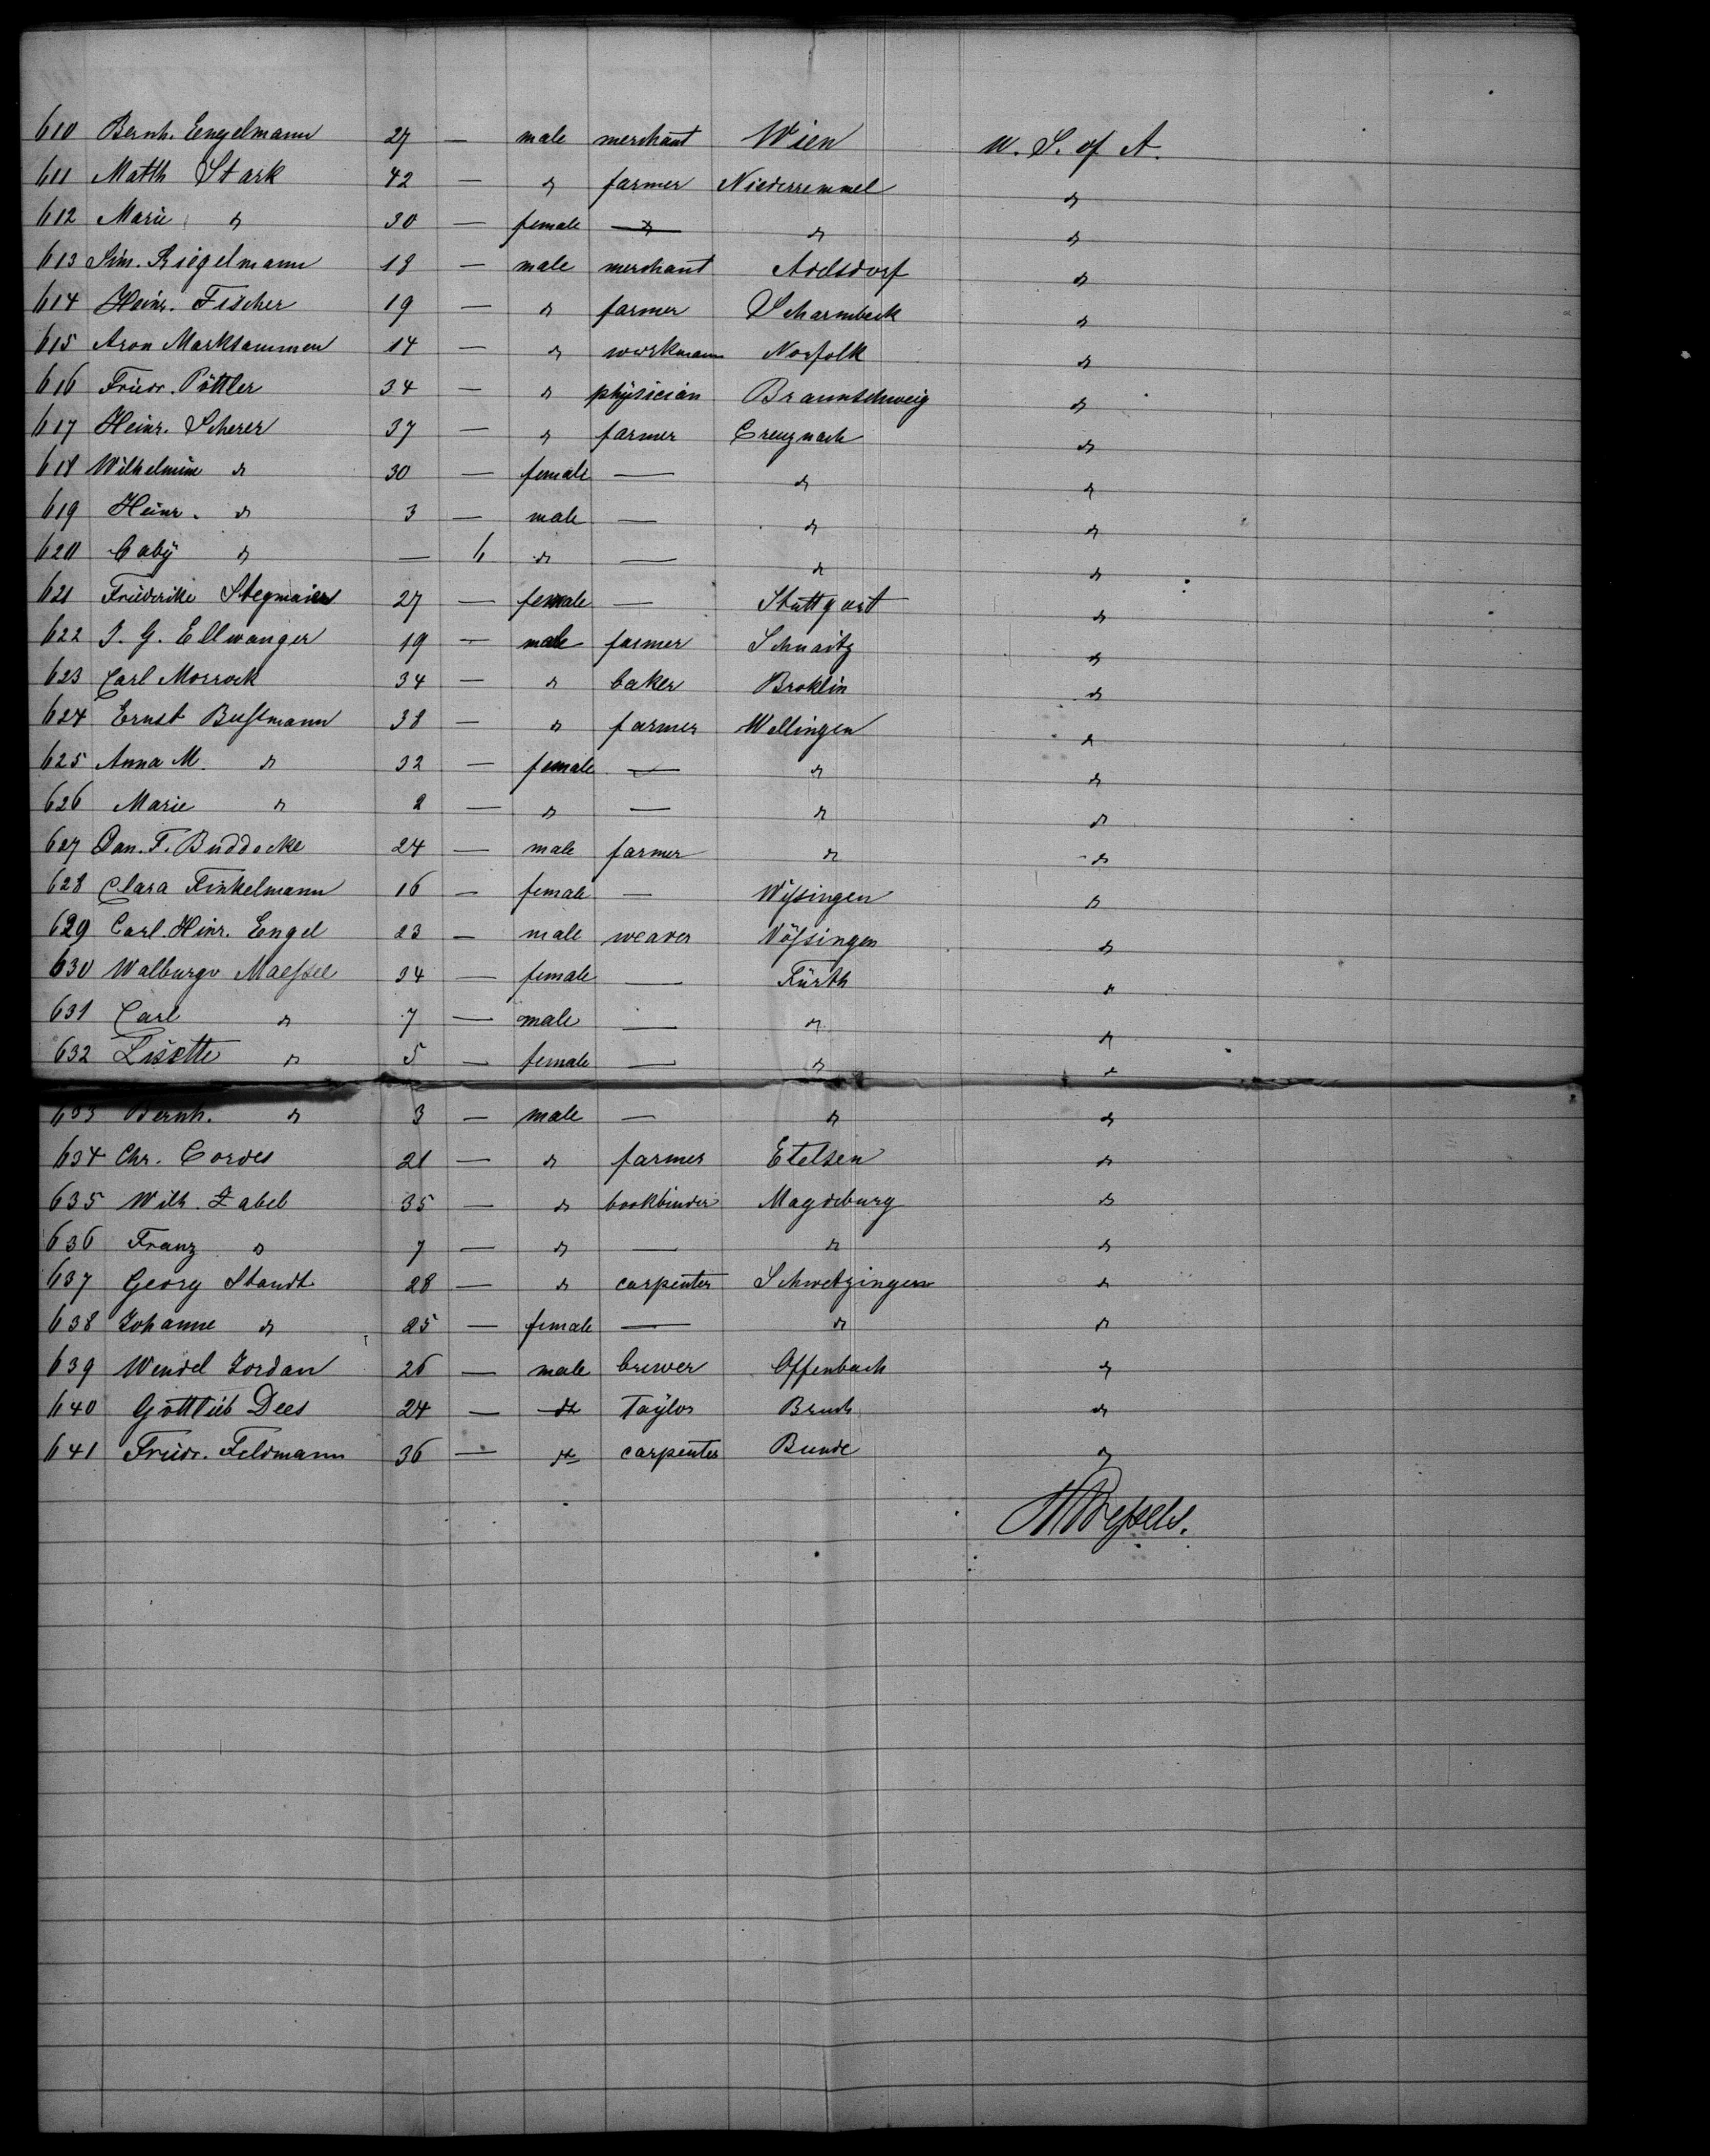 610 Bernh. Engelmann 27 — male merchant Wien U. S. of A.
611 Matth Stark 42 — " farmer Niederemmel "
612 Marie " 30 — female — " "
613 Sim. Riegelmann 18 — male merchant Adelsdorf "
614 Heinr. Fischer 19 — " farmer Scharmbeck "
615 Aron Marksammen 14 — " workmann Norfolk "
616 Friedr. Pöttler 34 — " physician Braunschweig "
617 Heinr. Scherer 37 — " farmer Creuznach "
618 Wilhelmine " 30 — female — " "
619 Heinr. " 3 — male — " "
620 baby " — 6 " — " "
621 Friederike Stegmaier 27 — female — Stuttgart "
622 J. G. Ellwanger 19 — male farmer Schnaitz "
623 Carl Morrock 34 — " baker Broklin "
624 Ernst Bußmann 38 — " farmer Wellingen "
625 Anna M. " 32 — female — " "
626 Marie " 2 — " — " "
627 Dan. F. Buddecke 24 — male farmer " "
628 Clara Finkelmann 16 — female — Wißingen "
629 Carl Hinr. Engel 23 — male weaver Vößingen "
630 Walburg 34 — female — Fürth "
631 Carl " 7 — male — " "
632 Lisette " 5 — female — " "
633 Bernh. " 3 — male — " "
634 Chr. Cordes 21 — " farmer Etelsen "
635 Wilh. Zabel 35 — " bookbinder Magdeburg "
636 Franz " 7 — " — " "
637 Georg Staudt 28 — " carpenter Schwetzingen "
638 Johanne " 25 — female — " "
639 Wendel Jordan 26 — male brewer Offenbach "
640 Gottlieb Dees 24 — " Taylor Bruch "
641 Friedr. Feldmann 36 — " carpenter Bunde "
HWessels.